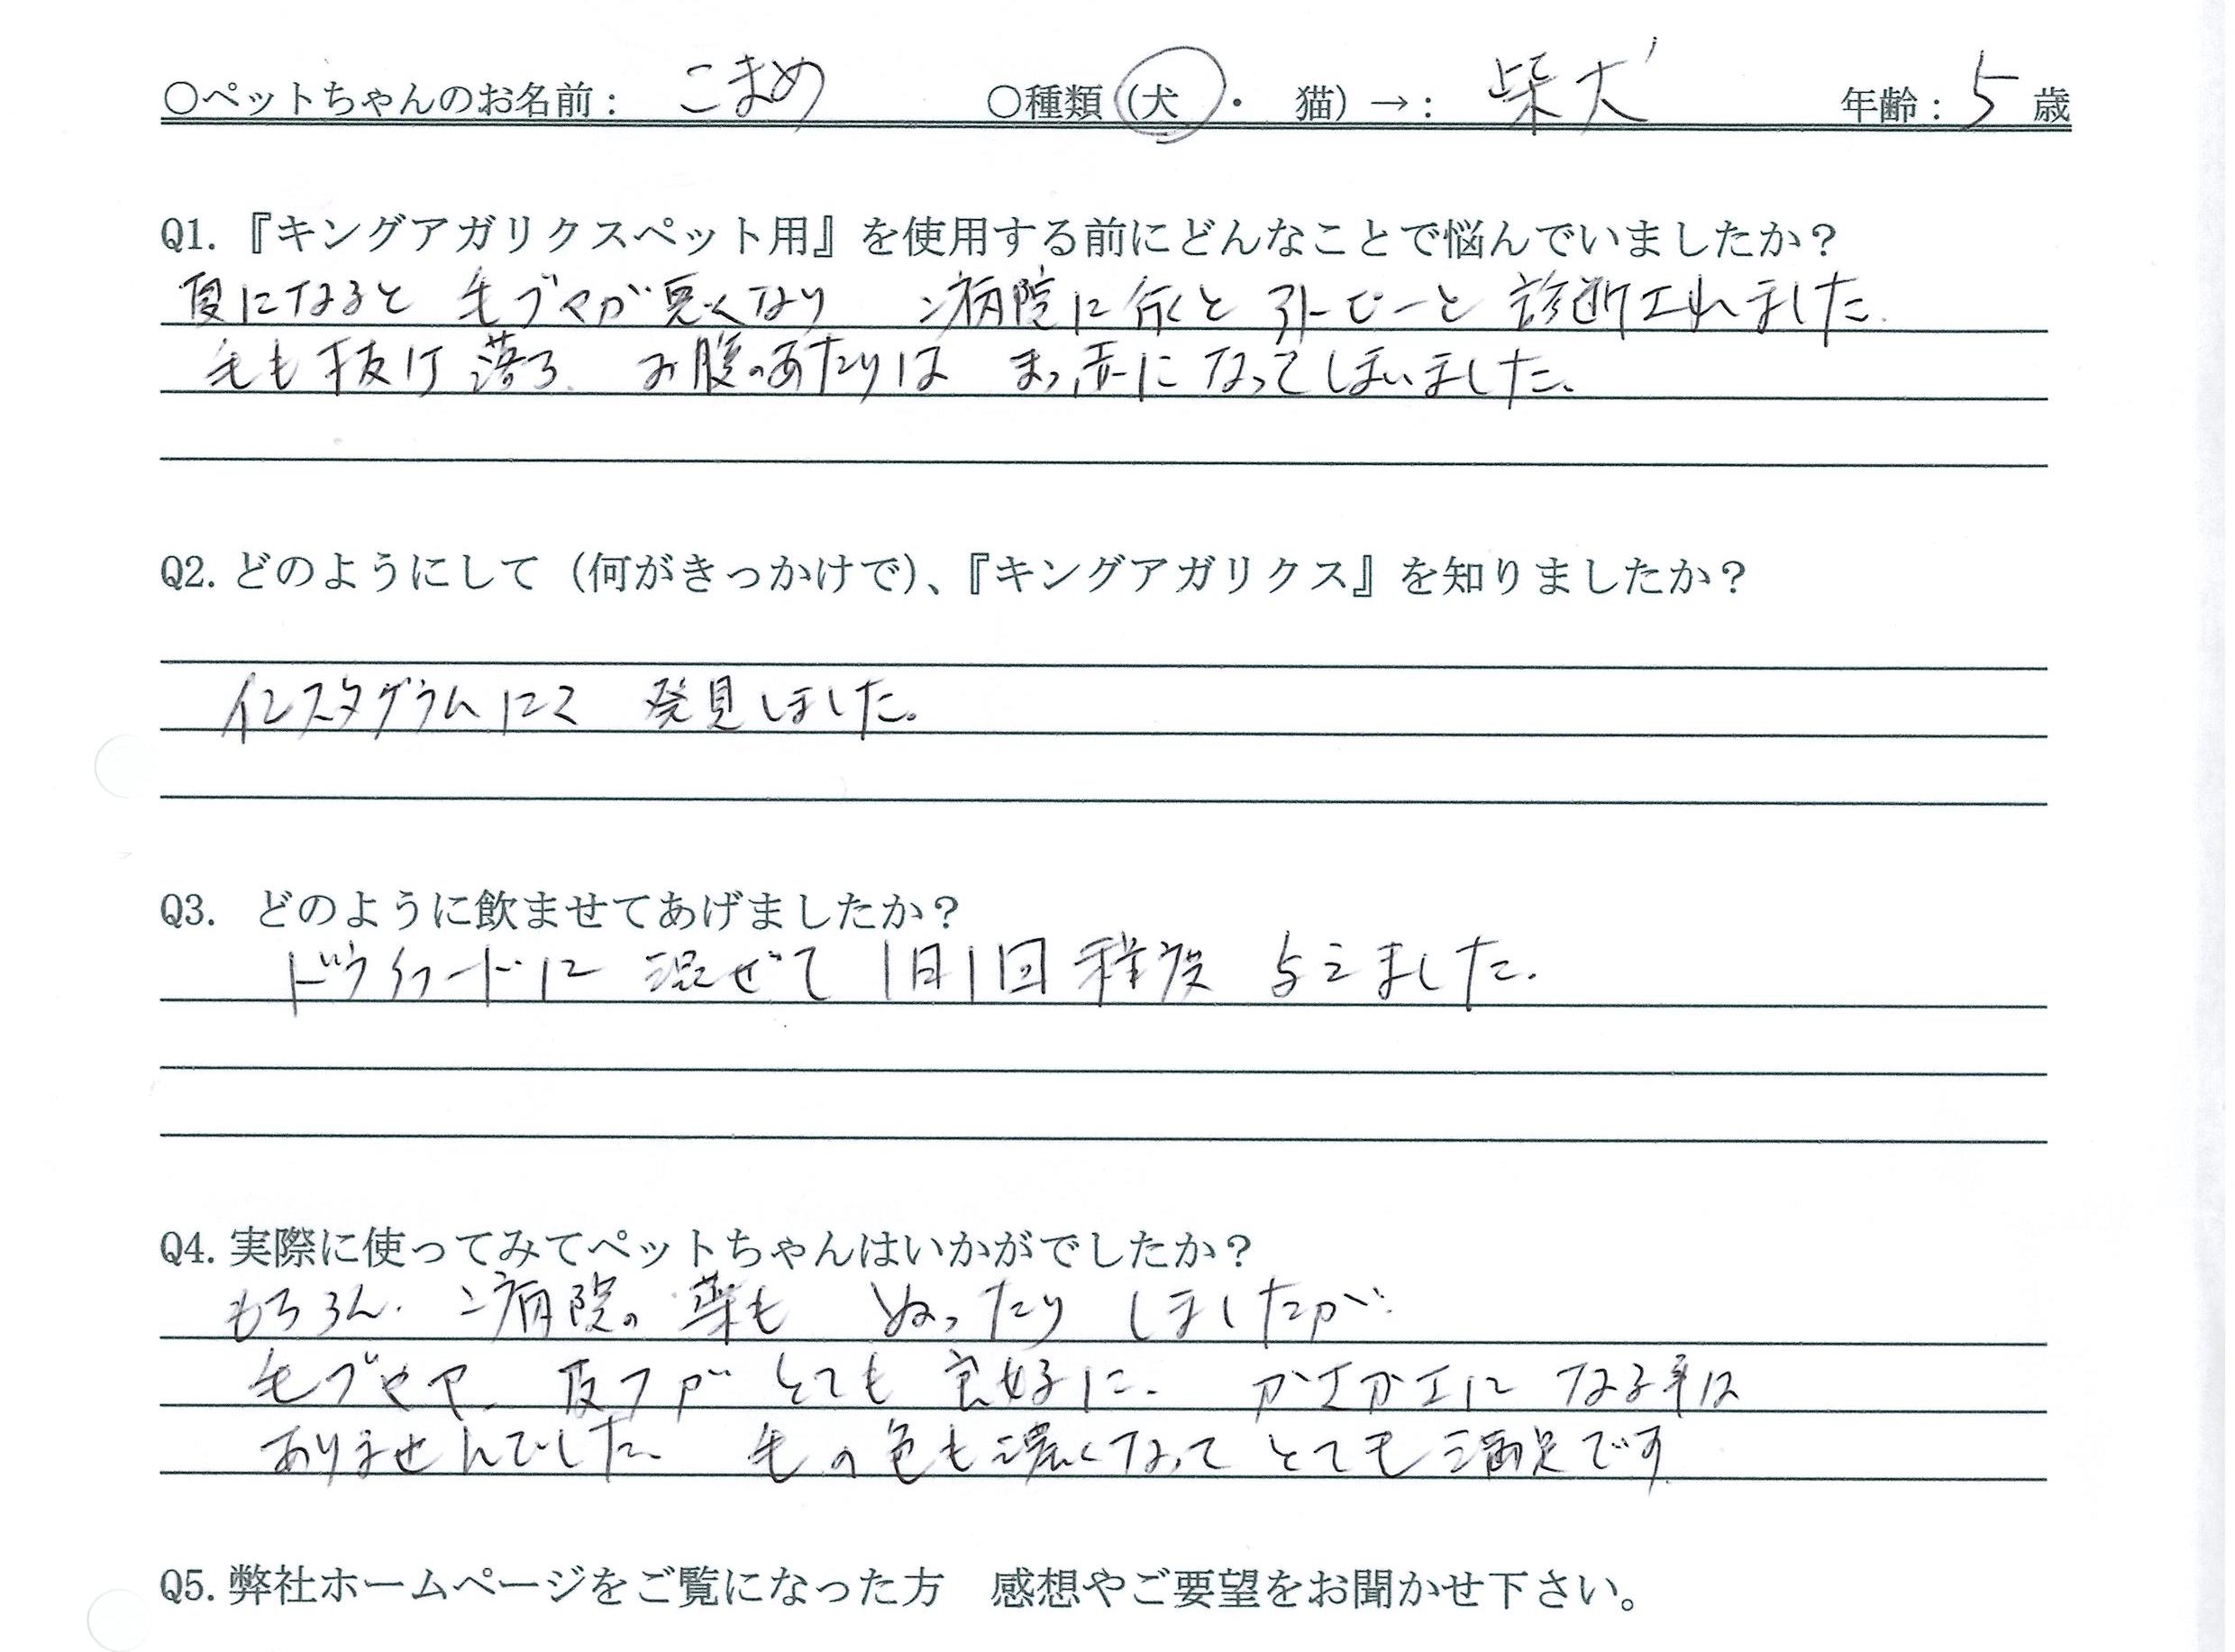 ○ペットちゃんのお名前： こまめ ○種類（犬 ・ 猫）→： 柴犬 年齢：5 歳
Q1.『キングアガリクスペット用』を使用する前にどんなことで悩んでいましたか？
夏になると 毛ヅヤが悪くなり 病院に行くと アトピーと 診断されました。
毛も抜け落ち お腹のあたりは まっ赤になってしまいました。
Q2.どのようにして（何がきっかけで）、『キングアガリクス』を知りましたか？
インスタグラムにて 発見しました。
Q3. どのように飲ませてあげましたか？
ドライフードに 混ぜて 1日1回程度 与えました。
Q4.実際に使ってみてペットちゃんはいかがでしたか？
もちろん、病院の薬も ぬったり しましたが
毛ヅヤや、皮フが とても 良好に、 カサカサに なる事は
ありませんでした。 毛の色も濃くなって とても 満足です
Q5.弊社ホームページをご覧になった方 感想やご要望をお聞かせ下さい。